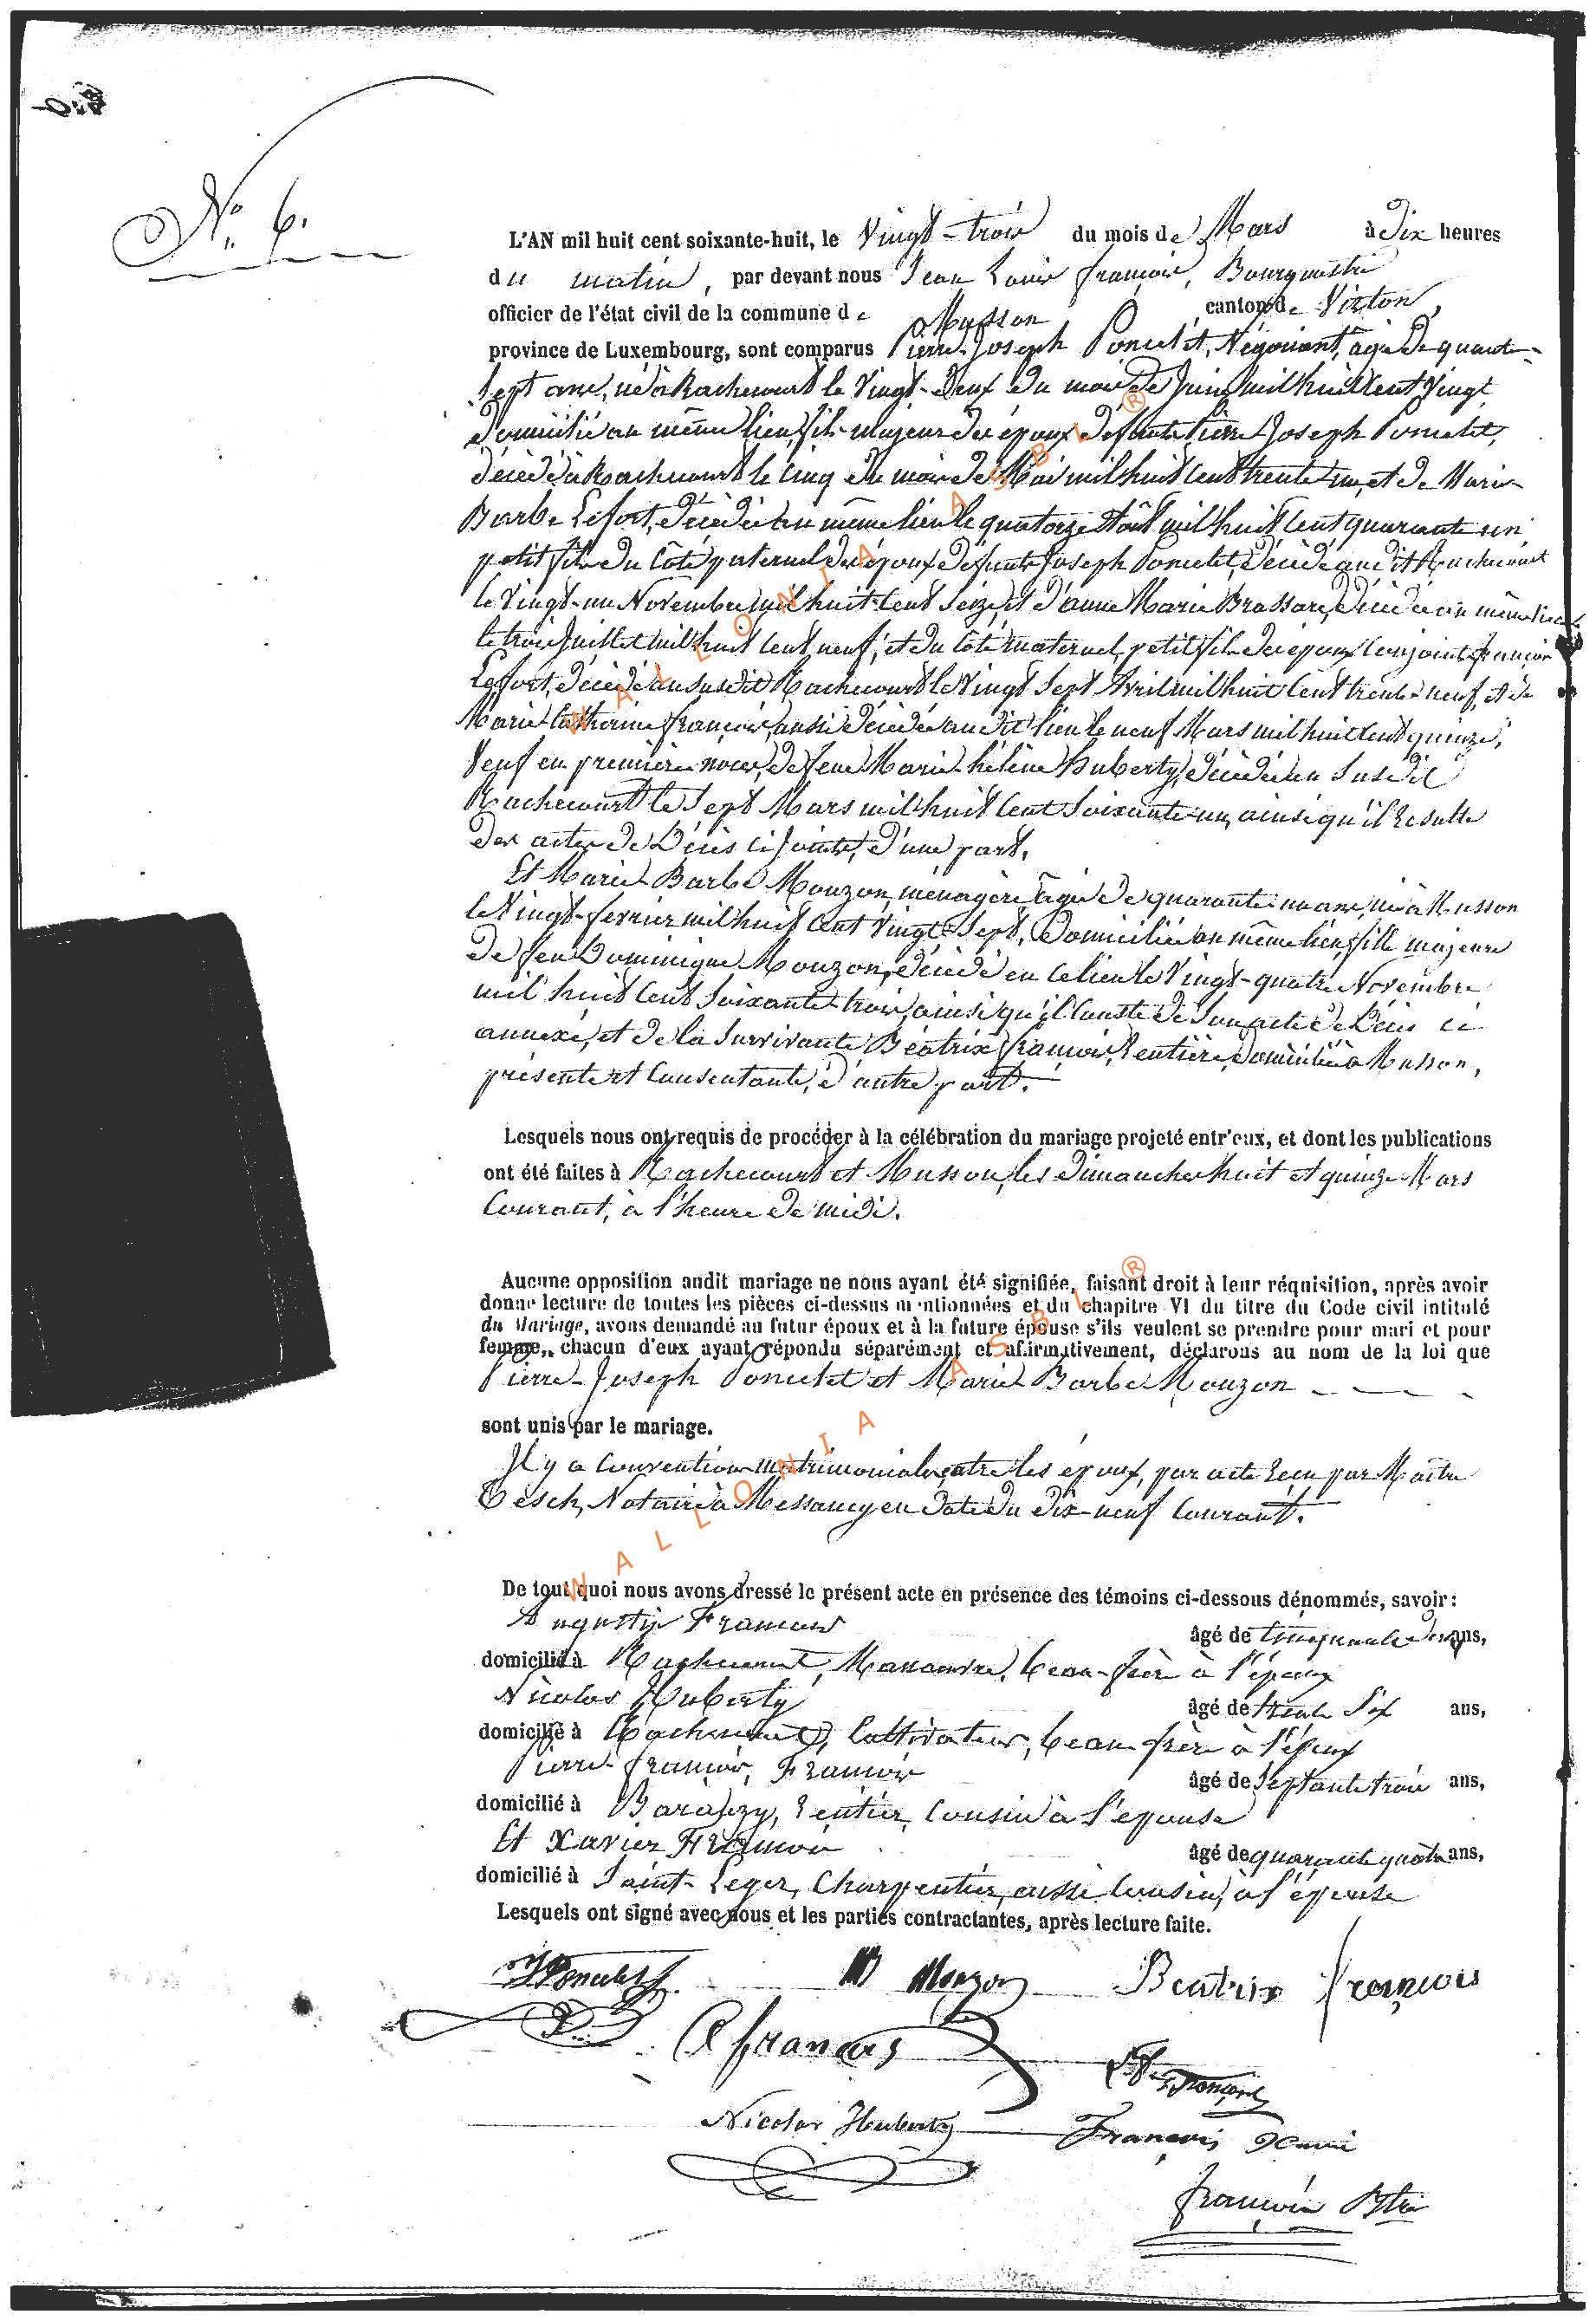 N° 6.
L'AN mil huit cent soixante-huit, le Vingt-trois du mois de Mars à Dix heures
du matin, par devant nous Jean Louis françois, Bourgmestre
officier de l'état civil de la commune de Musson canton de Virton,
province de Luxembourg, sont comparus Pierre-Joseph Poncelet, Négociant, âgé de quarante-
sept ans, né à Rachecourt le Vingt-deux du mois de Juin mil huit cent Vingt
domicilié au même lieu, fils majeur des époux défunts Pierre-Joseph Poncelet,
décédé à Rachecourt le cinq du mois de Mai mil huit cent trente-un, et de Marie-
Barbe Lefort, décédée au même lieu le quatorze Août mil huit cent quarante un
petit fils du côté paternel des époux défunts Joseph Poncelet, décédé audit Rachecourt
le Vingt-un Novembre mil huit-cent Seize, et d'anne Marie Brassard, décédée au même lieu
le trois Juillet mil huit cent neuf, et du côté maternel, petit fils des époux conjoints françois
Lefort, décédé au susdit Rachecourt le Vingt Sept Avril mil huit Cent trente-neuf, et de
Marie-Catherine françois, aussi décédée audit lieu le neuf Mars mil huit cent quinze,
Veuf en première noces, de feue Marie-hélène huberty, décédée au Susdit
Rachecourt le Sept Mars mil huit Cent Soixante-un, ainsi qu'il Résulte
des actes de Décès ci joints, d'une part,
Et Marie-Barbe Mouzon, ménagère, âgée de quarante-un ans, née à Musson
le Vingt-fevrier mil huit Cent Vingt-Sept, domiciliée au même lieu, fille majeure
de feu Dominique Mouzon, décédé en ce lieu le Vingt-quatre Novembre
mil huit Cent Soixante-trois, ainsi qu'il Conste de Son acte de Décès ci
annexé, et de la Survivante Béatrix françois, Rentière, domiciliée à Musson,
présente et Consentante, d'autre part.
Lesquels nous ont requis de procéder à la célébration du mariage projeté entr'eux, et dont les publications
ont été faites à Rachecourt et Musson, les dimanches huit et quinze Mars
Courant, à l'heure de midi.
Aucune opposition audit mariage ne nous ayant été signifiée, faisant droit à leur réquisition, après avoir
donné lecture de toutes les pièces ci-dessus mentionnées et du chapitre VI du titre du Code civil intitulé
du Mariage, avons demandé au futur époux et à la future épouse s'ils veulent se prendre pour mari et pour
femme, chacun d'eux ayant répondu séparément et affirmativement, déclarons au nom de la loi que
Pierre-Joseph Poncelet et Marie-Barbe Mouzon
sont unis par le mariage.
Il y a Convention Matrimoniale entre les époux, par acte Reçu par Maître
Tesch, Notaire à Messancy en date du dix-neuf Courant.
De tout quoi nous avons dressé le présent acte en présence des témoins ci-dessous dénommés, savoir:
Augustin Francois âgé de Cinquante ans,
domicilié à Rachecourt, beau-frère à l'époux
Nicolas Huberty âgé de trente Six ans,
domicilié à Rachecourt, Cultivateur, beau-frère à l'époux
Pierre-françois, François âgé de Septante trois ans,
domicilié à Baranzy, Rentier, Cousin à l'épouse
Et Xavier François âgé de quarante quatre ans,
domicilié à Saint-Leger, Charpentier, aussi Cousin, à l'épouse
Lesquels ont signé avec nous et les parties contractantes, après lecture faite.
Poncelet MB Mouzon Beatrix françois
A françois
françois
Nicolas Huberty François Xavié
françois Btre
WALLONIA ASBL ®
WALLONIA ASBL ®